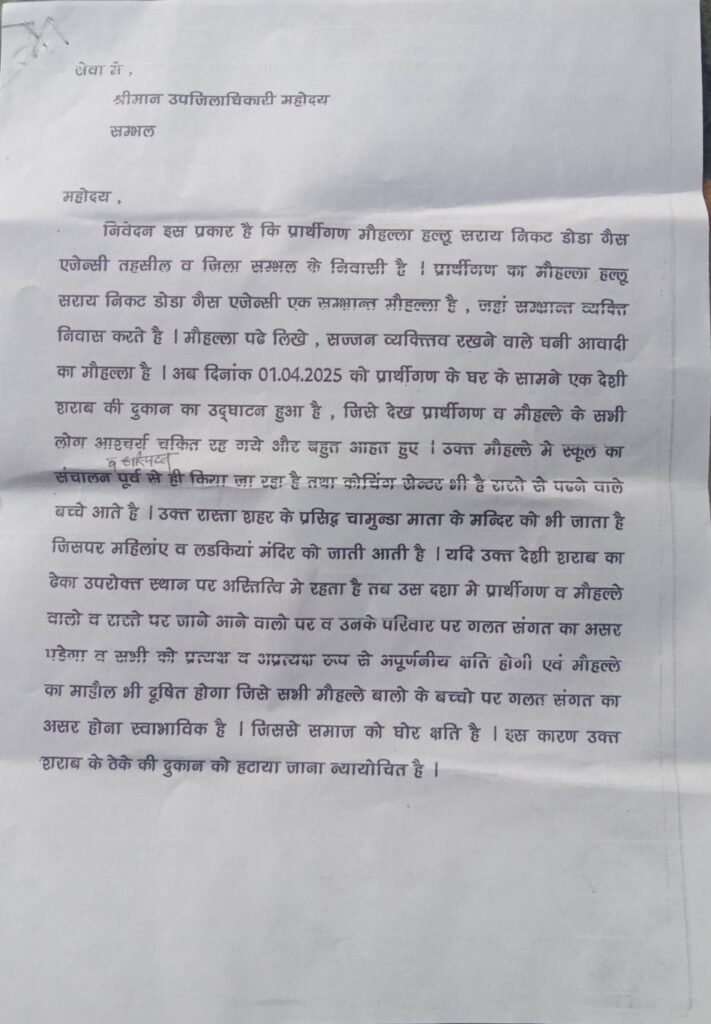 सेवा मे ,
श्रीमान उपजिलाधिकारी महोदय
सम्भल
महोदय ,
निवेदन इस प्रकार है कि प्रार्थीगण मौहल्ला हल्लू सराय निकट डोडा गैस
एजेन्सी तहसील व जिला सम्भल के निवासी है । प्रार्थीगण का मौहल्ला हल्लू
सराय निकट डोडा गैस एजेन्सी एक सम्भ्रान्त मौहल्ला है , जहां सम्भ्रान्त व्यक्ति
निवास करते है । मौहल्ला पढे लिखे , सज्जन व्यक्तित्व रखने वाले घनी आवादी
का मौहल्ला है । अब दिनांक 01.04.2025 को प्रार्थीगण के घर के सामने एक देशी
शराब की दुकान का उद्घाटन हुआ है , जिसे देख प्रार्थीगण व मौहल्ले के सभी
लोग आश्चर्य चकित रह गये और बहुत आहत हुए । उक्त मौहल्ले मे स्कूल का
व हास्पिटल
संचालन पूर्व से ही किया जा रहा है तथा कोचिंग सेन्टर भी है रास्ते से पढने वाले
बच्चे आते है । उक्त रास्ता शहर के प्रसिद्व चामुन्डा माता के मन्दिर को भी जाता है
जिसपर महिलांए व लडकियां मंदिर को जाती आती है । यदि उक्त देशी शराब का
ठेका उपरोक्त स्थान पर अस्तित्वि मे रहता है तब उस दशा मे प्रार्थीगण व मौहल्ले
वालो व रास्ते पर जाने आने वालो पर व उनके परिवार पर गलत संगत का असर
पडेगा व सभी को प्रत्यक्ष व अप्रत्यक्ष रूप से अपूर्णनीय क्षति होगी एवं मौहल्ले
का माहौल भी दूषित होगा जिसे सभी मौहल्ले बालो के बच्चो पर गलत संगत का
असर होना स्वाभाविक है । जिससे समाज को घोर क्षति है । इस कारण उक्त
शराब के ठेके की दुकान को हटाया जाना न्यायोचित है ।